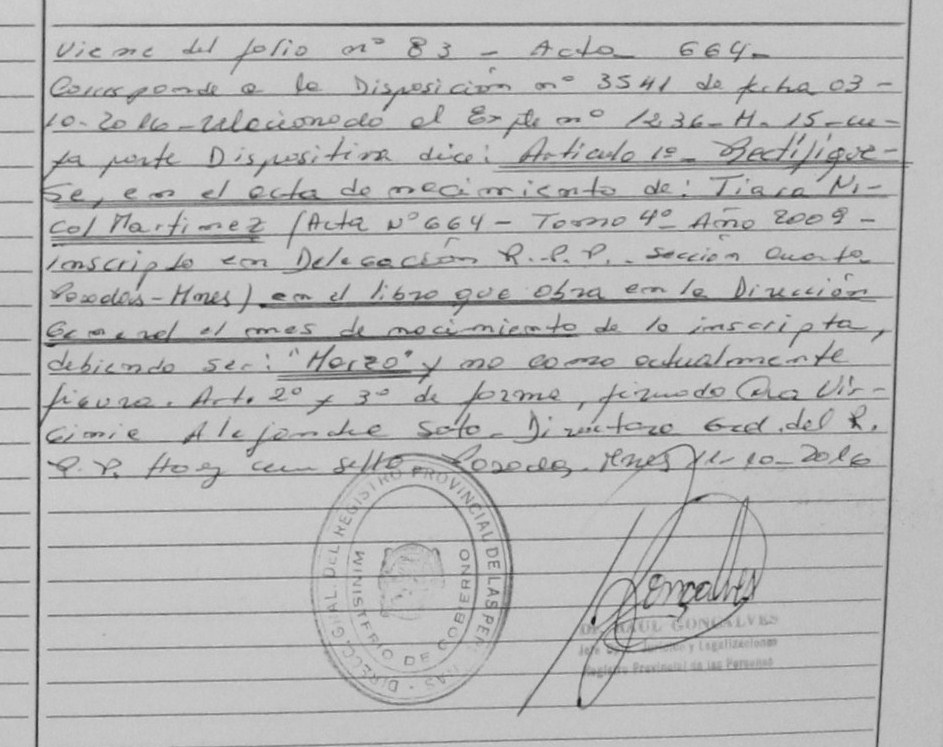 Viene del folio nº 83 - Acta 664-
Corresponde a la Disposición nº 3541 de fecha 03-
10-2016-relacionado al Expte nº 1236-H-15-cu-
ya parte Dispositiva dice: Artículo 1º- Rectifíque-
se, en el acta de nacimiento de: Tiara Ni-
col Martinez (Acta Nº 664 - Tomo 4º- Año 2009-
inscripta en Delegación R.P.P. - Sección Cuarta
Posadas-Mnes) en el libro que obra en la Dirección
General el mes de nacimiento de la inscripta,
debiendo ser: "Marzo" y no como actualmente
figura. Art. 2º y 3º de forma, firmado Vir-
ginia Alejandra Soto-Directora Gral. del R.
P.P. Hay un sello Posadas, Mnes 11-10-2016
DIRECC. GRAL. DEL REGISTRO PROVINCIAL DE LAS PERSONAS
MINISTERIO DE GOBIERNO
Gonçalves
RAUL GONCALVES
y Legalizaciones
Registro Provincial de las Personas